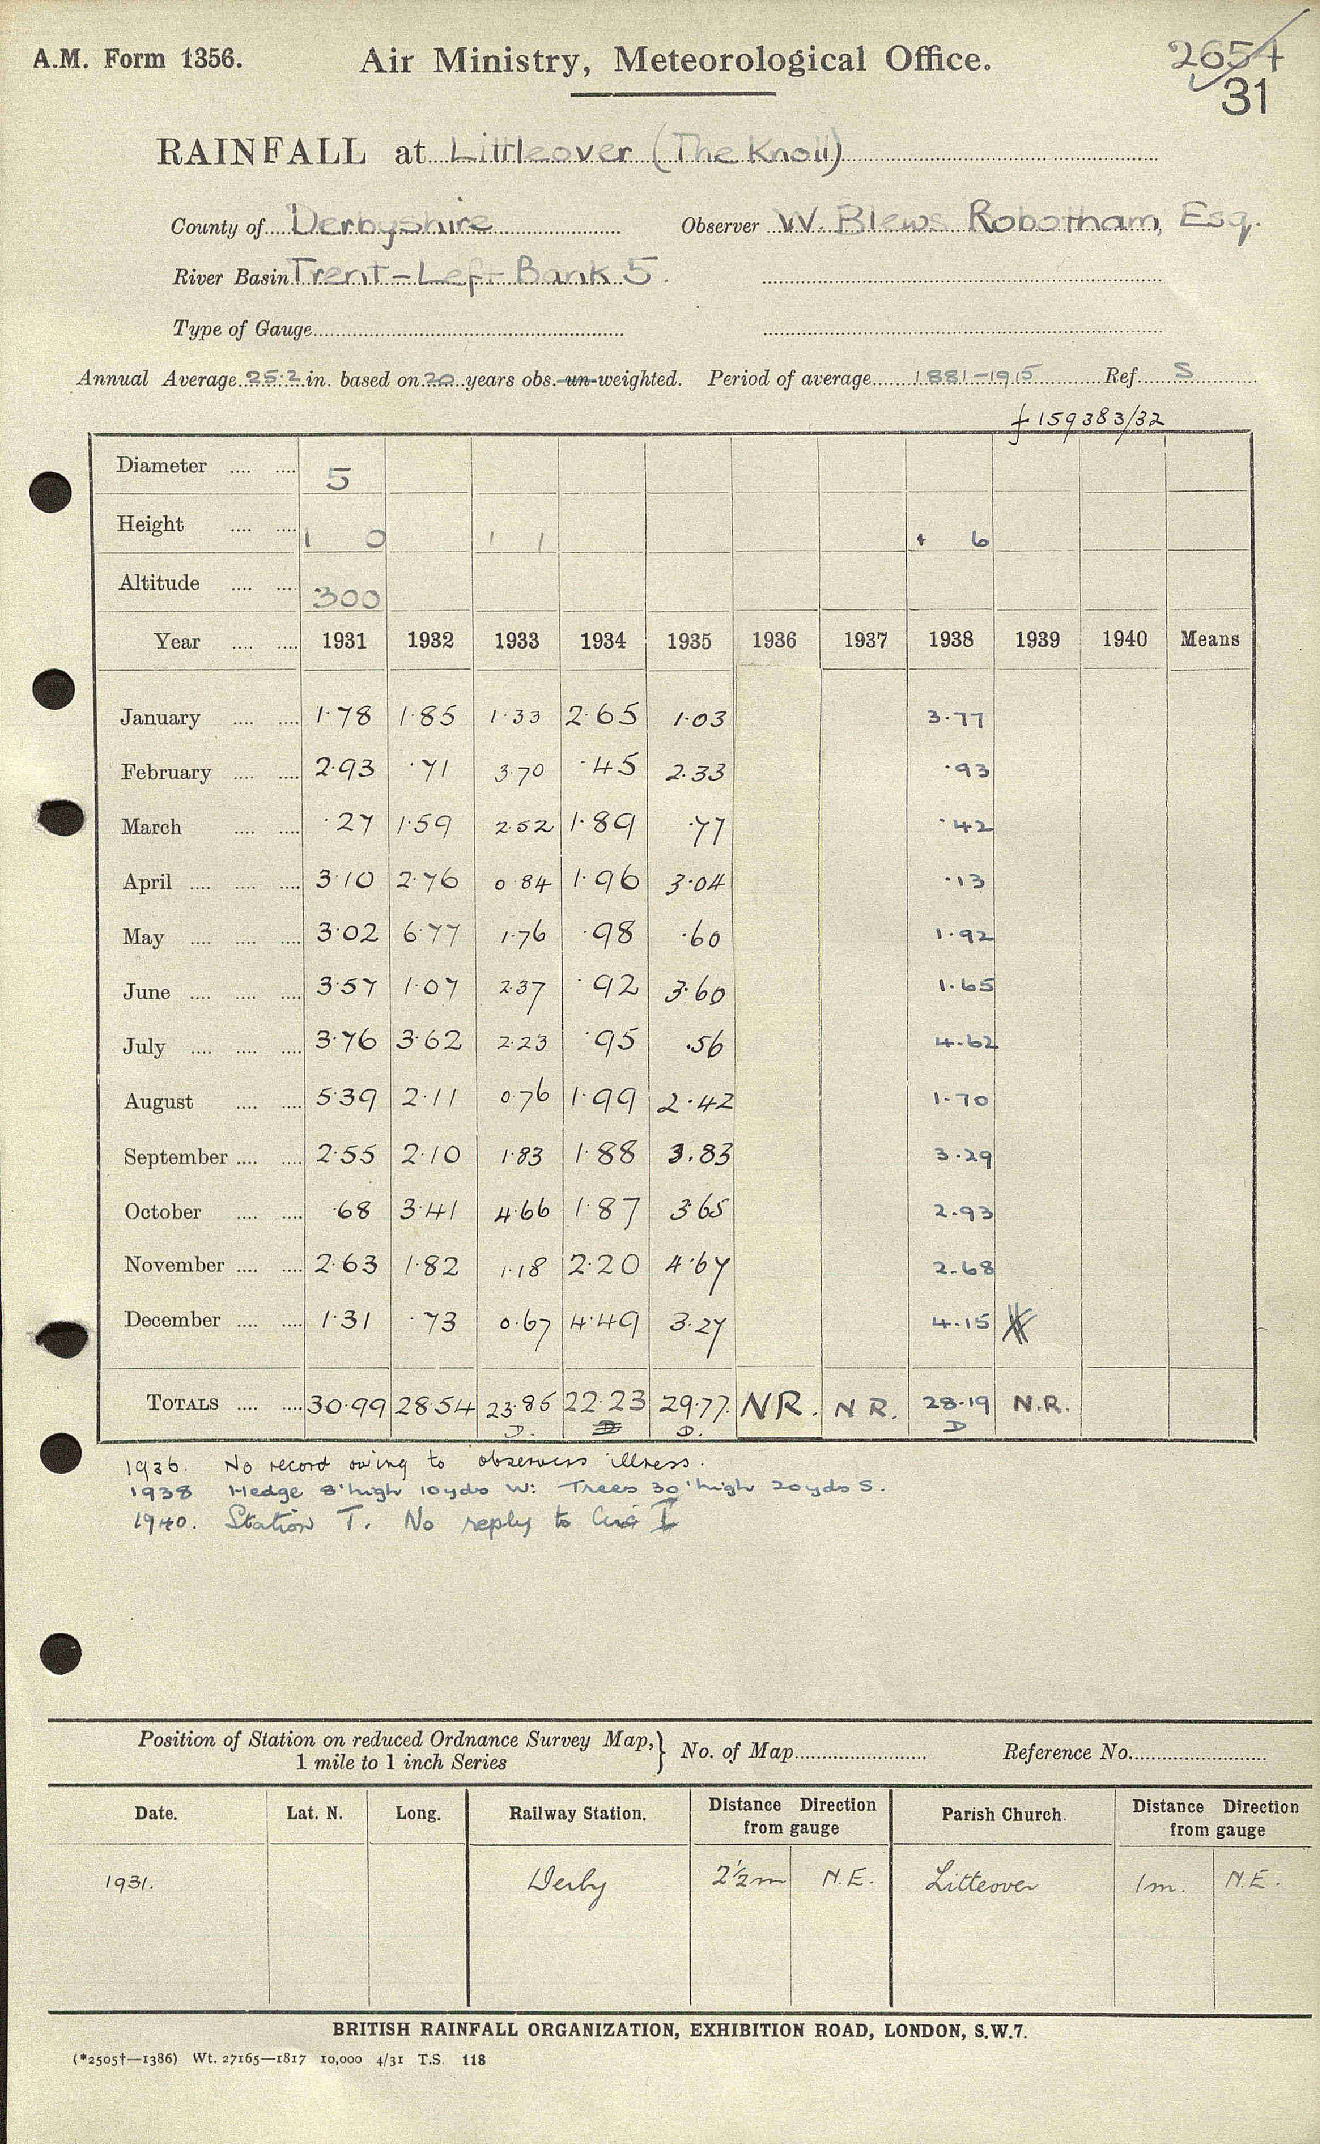 A.M. Form 1356.
Air Ministry, Meteorological Office.
2654
31
RAINFALL at Littleover (The Knoll)
County of Derbyshire Observer W. Blews Robotham, Esq.
River Basin Trent-Left Bank 5.
Type of Gauge
Annual Average 25.2 in. based on 20 years obs. un-weighted. Period of average 1881-1915 Ref. S
159383/32
Diameter 5
Height 1 0 1 1 1 6
Altitude 300
Year 1931 1932 1933 1934 1935 1936 1937 1938 1939 1940 Means
January 1.78 1.85 1.33 2.65 1.03 3.77
February 2.93 .71 3.70 .45 2.33 .93
March .27 1.59 2.52 1.89 .77 .42
April 3.10 2.76 0.84 1.96 3.04 .13
May 3.02 6.77 1.76 .98 .60 1.92
June 3.57 1.07 2.37 .92 3.60 1.65
July 3.76 3.62 2.23 .95 .56 4.62
August 5.39 2.11 0.76 1.99 2.42 1.70
September 2.55 2.10 1.83 1.88 3.83 3.29
October .68 3.41 4.66 1.87 3.65 2.93
November 2.63 1.82 1.18 2.20 4.67 2.68
December 1.31 .73 0.67 4.49 3.27 4.15
TOTALS 30.99 28.54 23.85 22.23 29.77 N.R. N R. 28.19 N.R.
D. D D. D
1936. No record owing to observers illness.
1938 Hedge 8' high 10yds W: Trees 30' high 20yds S.
1940. Station T. No reply to
Position of Station on reduced Ordnance Survey Map, 1 mile to 1 inch Series } No. of Map Reference No.
Date. Lat. N. Long. Railway Station. Distance Direction from gauge Parish Church. Distance Direction from gauge
1931. Derby 2½m N.E. Litteover 1m. N.E.
BRITISH RAINFALL ORGANIZATION, EXHIBITION ROAD, LONDON, S.W.7.
(*2505†—1386) Wt. 27165—1817 10,000 4/31 T.S. 118